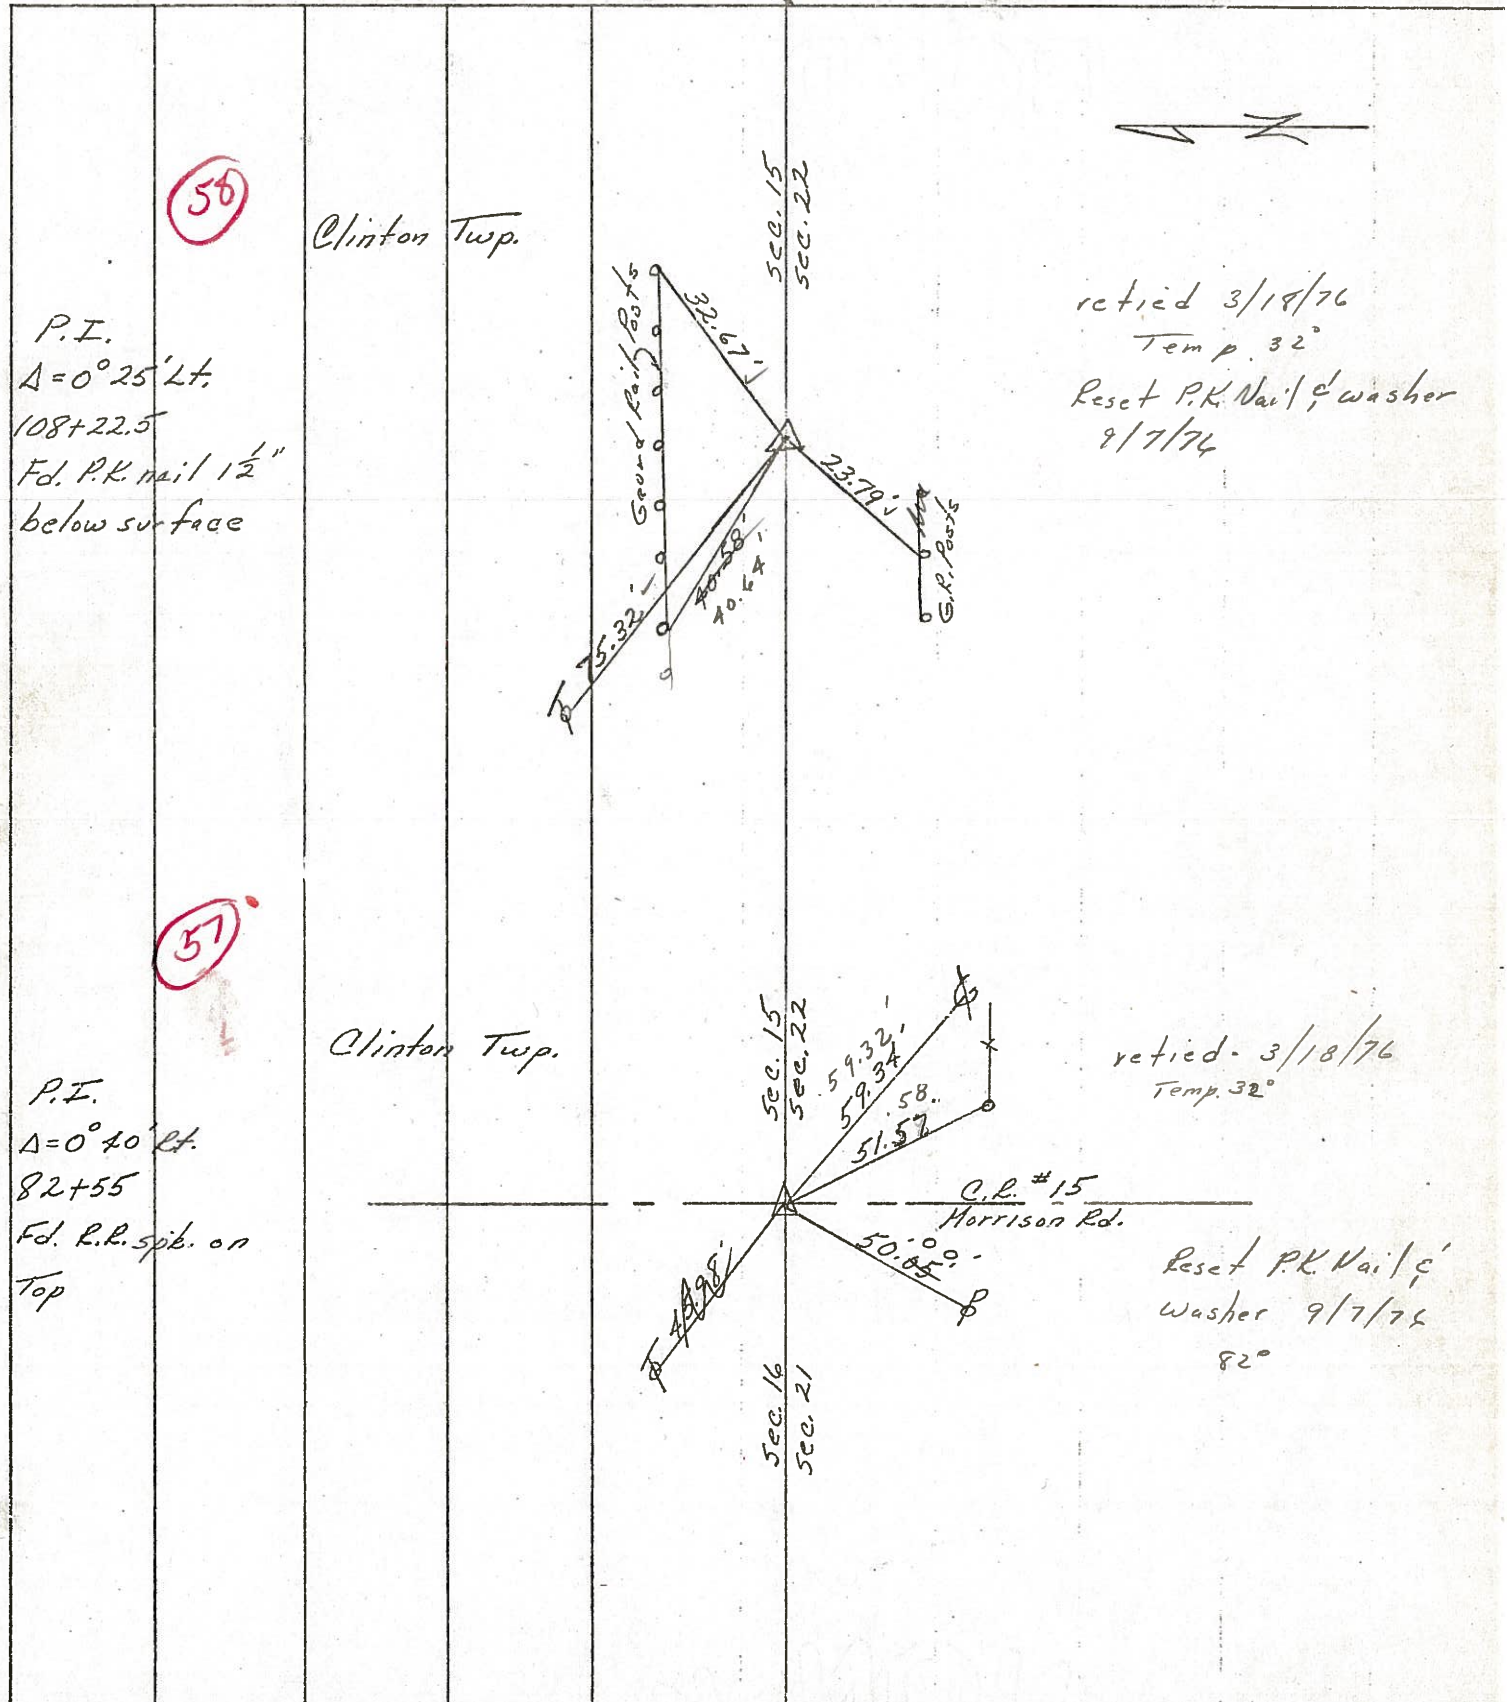 58
Clinton Twp.
P.I.
Δ=0°25' Lt.
108+22.5
Fd. P.K. nail 1 1/2"
below surface
Sec. 15
Sec. 22
Guard Rail Posts
32.67'
23.79'
40.58'
40.64'
75.32'
G.R. Posts
retied 3/18/76
Temp. 32°
Reset P.K. Nail & washer
9/7/76
57
Clinton Twp.
P.I.
Δ=0°40' Rt.
82+55
Fd. R.R. spk. on
Top
Sec. 15
Sec. 22
59.32'
59.34'
.58
51.57
C.R. #15
Morrison Rd.
50.05
.00
Sec. 16
Sec. 21
retied - 3/18/76
Temp. 32°
Reset P.K. Nail &
Washer 9/7/76
82°